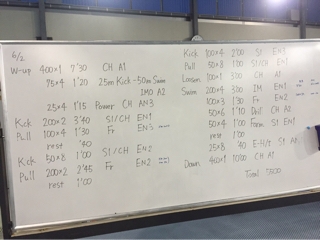 6/2
W-up 400×1 7'30 CH A1
75×4 1'20 25m Kick-50m Swim
IMO A2
25×4 1'15 Power CH AN3
Kick 200×2 3'40 S1/CH EN1
Pull 100×4 1'30 Fr EN3
rest '40
Kick S1/CH EN2
50×8 1'00 Fr EN2
Pull 200×2 2'45
rest 1'00
Kick 100×4 2'00 S1 EN3
Pull 50×8 1'00 S1/CH EN1
Loosen 100×1 3'00 CH A1
Swim 200×4 3'00 IM EN1
100×3 1'30 Fr EN2
50×6 1'10 Drill CH A2
50×4 1'00 Form S1 EN1
rest 1'00
25×8 '40 E-H/t S1
Down 400×1 10'00 CH A1
Total